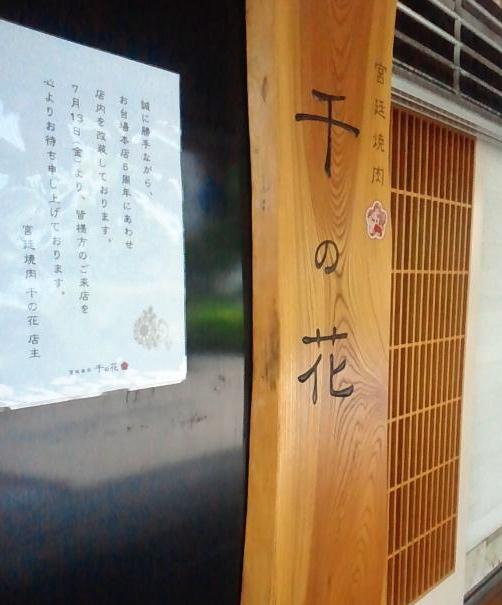 誠に勝手ながら、
お台場本店6周年にあわせ
店内を改装しております。
7月13日(金)より、皆様方のご来店を
心よりお待ち申し上げております。
宮廷焼肉 千の花 店主
宮廷焼肉 千の花
宮廷焼肉
千の花